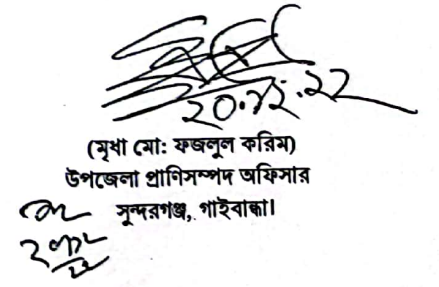 ২০.১২.২২
(মৃধা মো: ফজলুল করিম)
উপজেলা প্রাণিসম্পদ অফিসার
সুন্দরগঞ্জ, গাইবান্ধা।